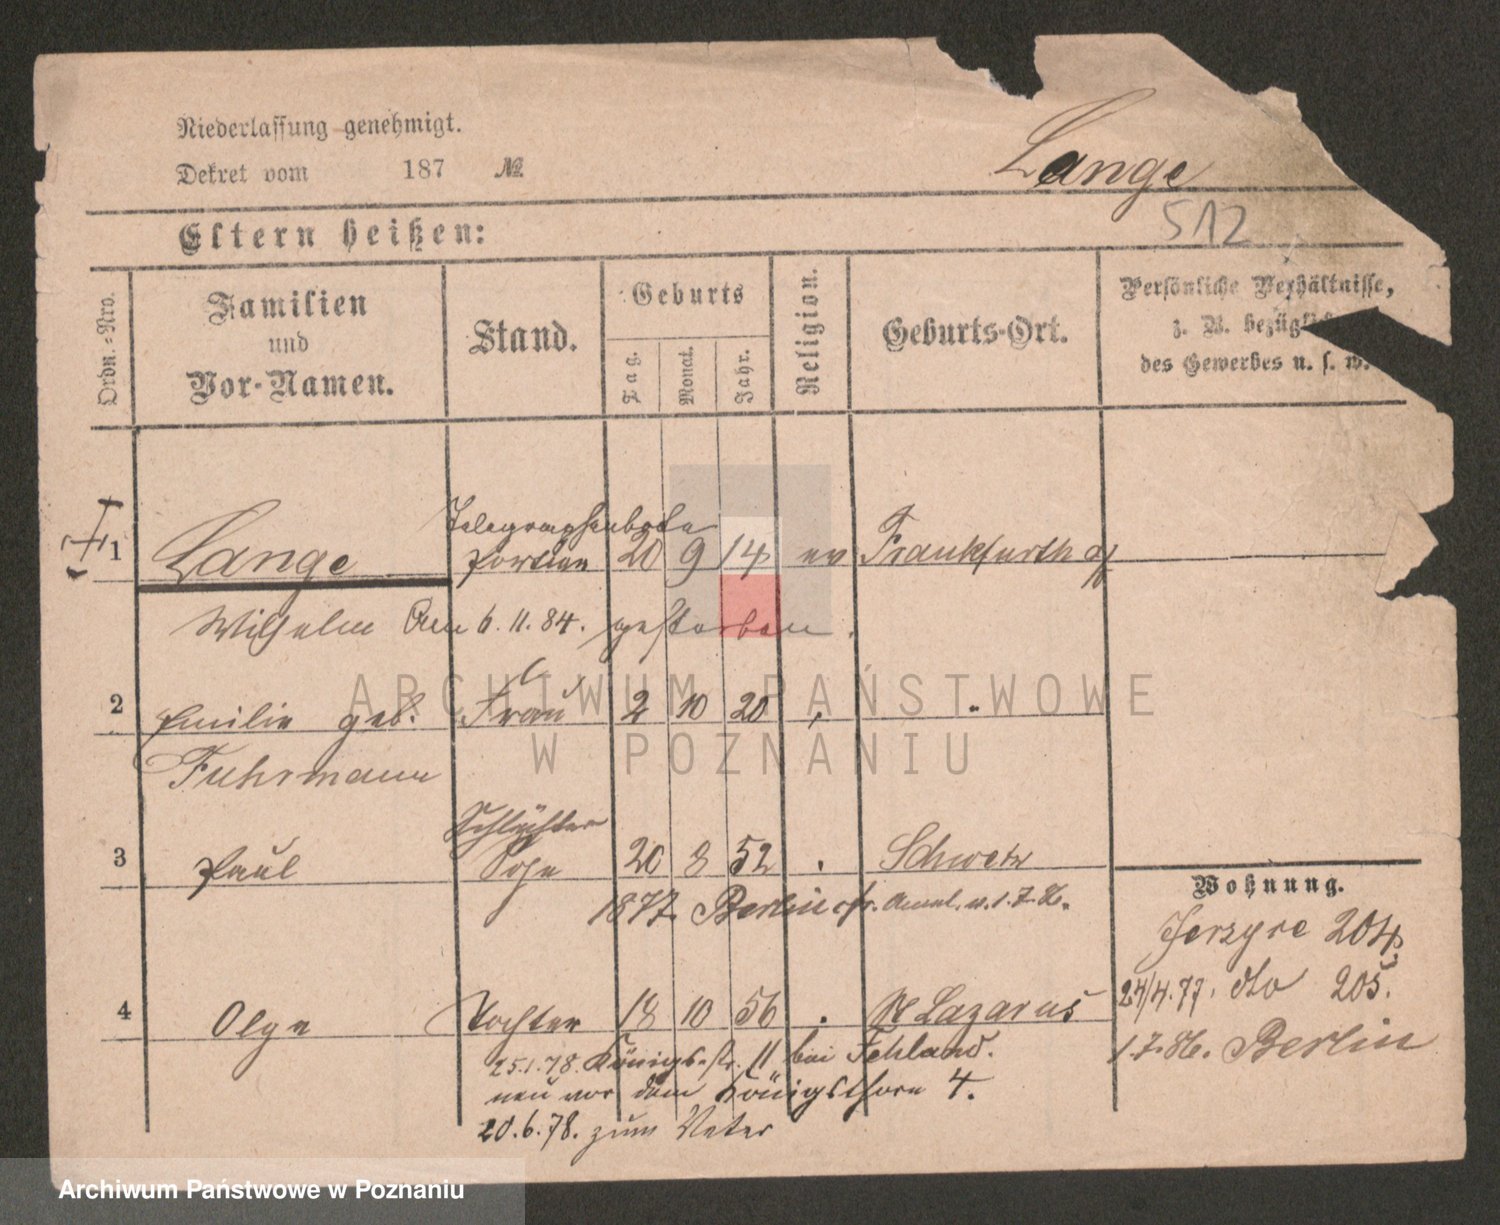 Niederlassung genehmigt.
Dekret vom 187 №
Lange
512
Eltern heißen:
Ordn.-Nro.
Familien
und
Vor-Namen.
Stand.
Geburts
Tag.
Monat.
Jahr.
Religion.
Geburts-Ort.
Persönliche Verhältnisse,
z. B. bezügl
des Gewerbes u. s. w.
Telegraphenbote
1 Lange Portier 20 9 14 ev Frankfurth a/
Wilhelm Am 6.11.84. gestorben.
2 Emilie geb. Frau 2 10 20
Fuhrmann
Schlächter
3 Paul Sohn 20 8 52 Schwetz
1877. Berlin v. 1.7.86.
Wohnung.
Jerzyce 204
24/4.77. dto 205.
4 Olga Tochter 18 10 56 St Lazarus
1.7.86. Berlin
25.1.78. Königsstr. 11 bei Fehland.
neu vor dem Königsthore 4.
20.6.78. zum Vater
ARCHIWUM PAŃSTWOWE
W POZNANIU
Archiwum Państwowe w Poznaniu